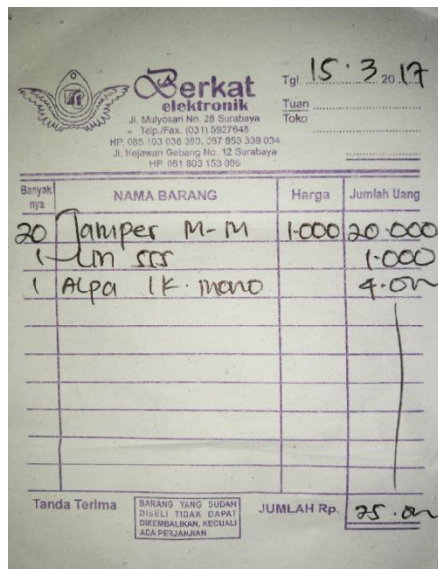 Berkat
elektronik
Jl. Mulyosari No. 28 Surabaya
Telp./Fax. (031) 5927648
HP. 085 103 038 390, 087 853 339 034
Jl. Kejawan Gebang No. 12 Surabaya
HP. 081 803 153 086
Tgl. 15 . 3 20 17
Tuan
Toko
Banyak nya NAMA BARANG Harga Jumlah Uang
20 Jamper M-M 1.000 20.000
1 1.000
1 1K. mono
Tanda Terima
BARANG YANG SUDAH
DIBELI TIDAK DAPAT
DIKEMBALIKAN, KECUALI
ADA PERJANJIAN
JUMLAH Rp.